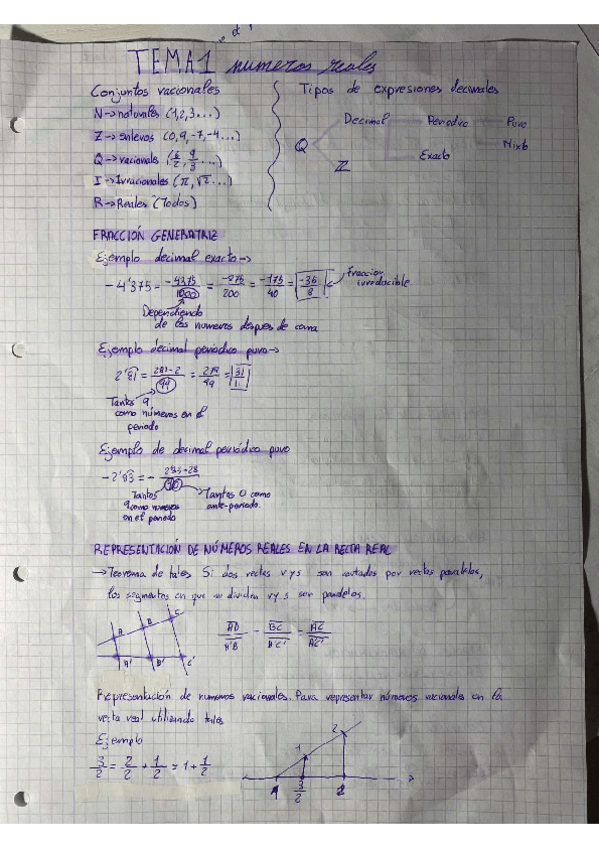 TEMA 1 numeros reales
Conjuntos racionales
N→naturales (1,2,3...)
Z→enteros (0,9,-7,-4...)
Q→racionales (6/2, 9/3 ...)
I→Irracionales (π, √2 ...)
R→Reales (Todos)
Tipos de expresiones decimales
Decimal Periodico Puro
Mixto
Q Exacto
Z
FRACCIÓN GENERATRIZ
Ejemplo decimal exacto→
-4'375 = -4375/1000 = -875/200 = -175/40 = -35/8 fraccion irreducible
Dependiendo
de los numeros despues de coma
Ejemplo decimal periodico puro→
2'81 = 281-2/99 = 279/99 = 31/11
Tantos 9
como números en el
periodo
Ejemplo de decimal periódico puro
-2'83 = - 283-28/90
Tantos
9 como numeros
en el periodo
Tantos 0 como
ante-periodo.
REPRESENTACIÓN DE NÚMEROS REALES EN LA RECTA REAL
→Teorema de tales Si dos rectas r y s son cortadas por rectas paralelas,
los segmentos en que se dividen r y s son
A B C
A' B' C'
AB/A'B' = BC/B'C' = AC/A'C'
Representación de numeros racionales. Para representar números racionales en la
recta real utilizando tales
Ejemplo
3/2 = 2/2 + 1/2 = 1 + 1/2
1 2
1 3/2 2